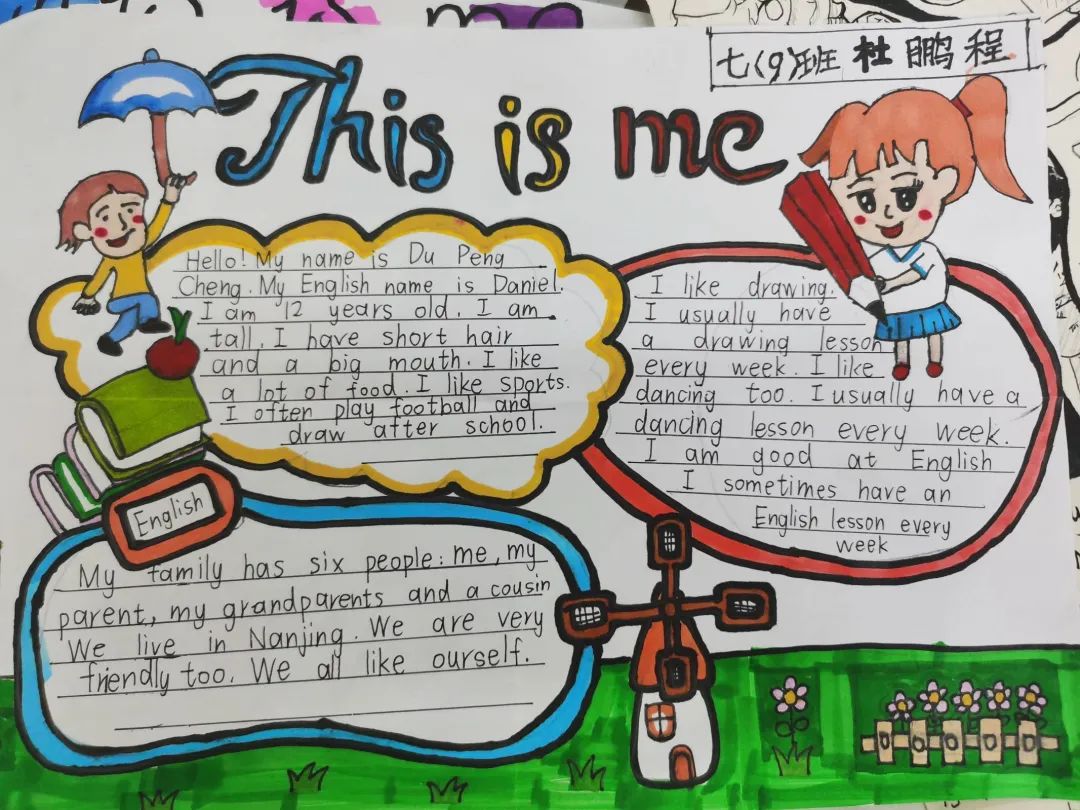 七(9)班 杜鹏程
This is me
Hello! My name is Du Peng
Cheng. My English name is Daniel.
I am 12 years old. I am
tall. I have short hair
and a big mouth. I like
a lot of food. I like sports.
I often play football and
draw after school.
I like drawing.
I usually have
a drawing lesson
every week. I like
dancing too. I usually have a
dancing lesson every week.
I am good at English
I sometimes have an
English lesson every
week
English
My family has six people: me, my
parent, my grandparents and a cousin
We live in Nanjing. We are very
friendly too. We all like ourself.